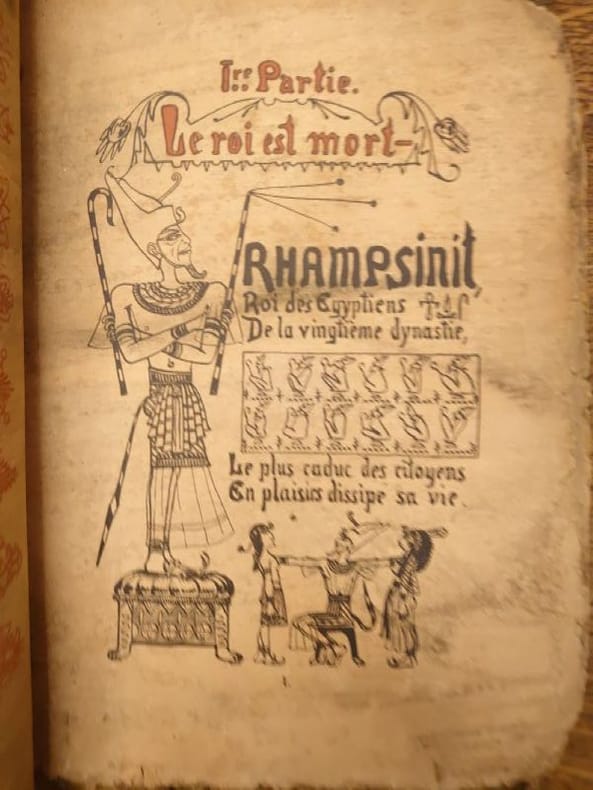 Ire Partie.
Le roi est mort-
RHAMPSINIT,
Roi des Egyptiens
De la vingtième dynastie,
Le plus caduc des citoyens
En plaisirs dissipe sa vie.
1.